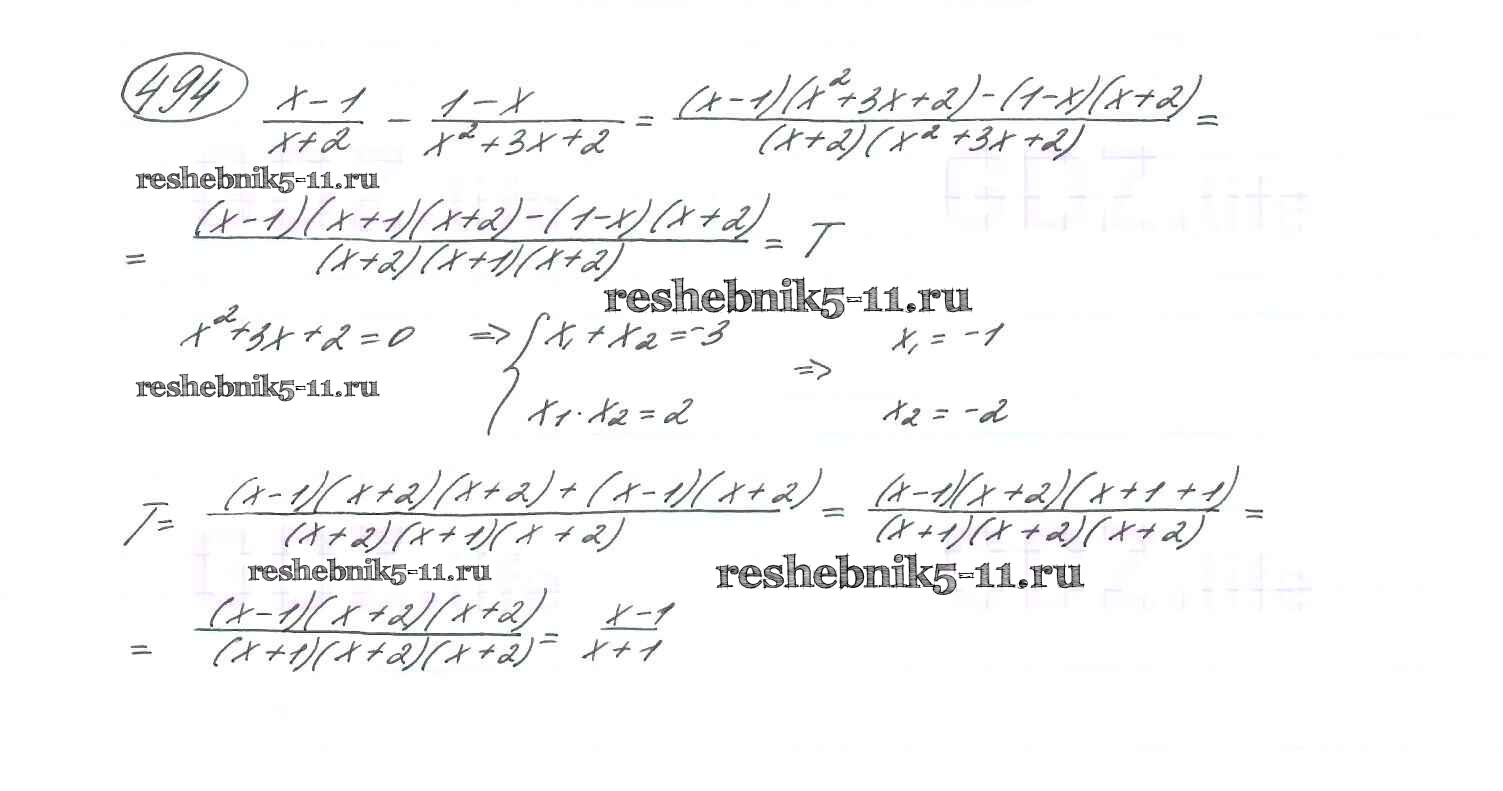 494 (x-1)/(x+2) - (1-x)/(x²+3x+2) = ((x-1)(x²+3x+2)-(1-x)(x+2))/((x+2)(x²+3x+2)) =
reshebnik5-11.ru
= ((x-1)(x+1)(x+2)-(1-x)(x+2))/((x+2)(x+1)(x+2)) = T
reshebnik5-11.ru
x²+3x+2=0 => { x₁+x₂=-3 => x₁=-1
reshebnik5-11.ru
x₁·x₂=2 x₂=-2
T= ((x-1)(x+2)(x+2)+(x-1)(x+2))/((x+2)(x+1)(x+2)) = ((x-1)(x+2)(x+1+1))/((x+1)(x+2)(x+2)) =
reshebnik5-11.ru reshebnik5-11.ru
= ((x-1)(x+2)(x+2))/((x+1)(x+2)(x+2)) = (x-1)/(x+1)